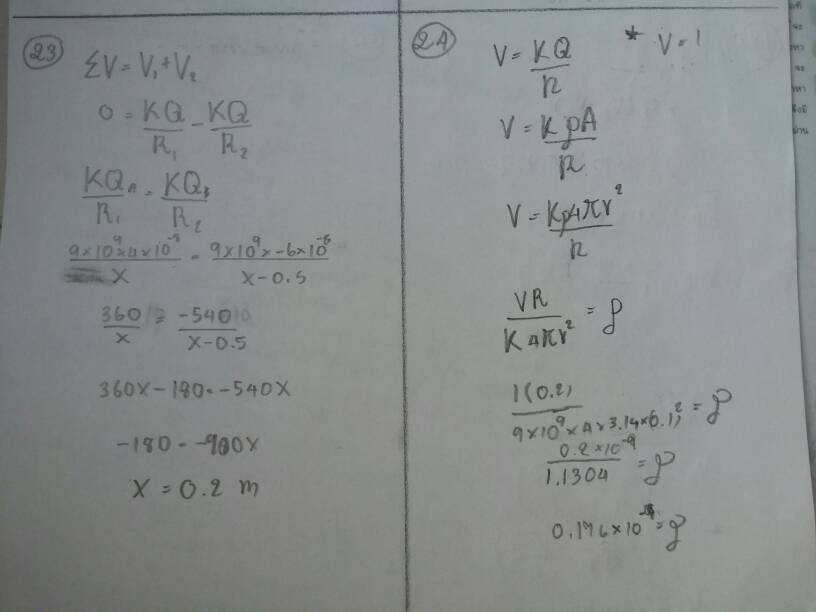 23
ΣV = V₁ + V₂
0 = KQ/R₁ - KQ/R₂
KQA/R₁ = KQB/R₂
9×10⁹×4×10⁻⁸/x = 9×10⁹×-6×10⁻⁸/x-0.5
360/x = -540/x-0.5
360x - 180 = -540x
-180 = -900x
x = 0.2 m
24
V = KQ/R * V = 1
V = KρA/R
V = Kρ4πr²/R
VR/K4πr² = ρ
1(0.2)/9×10⁹×4×3.14×(0.1)² = ρ
0.2×10⁻⁹/1.1304 = ρ